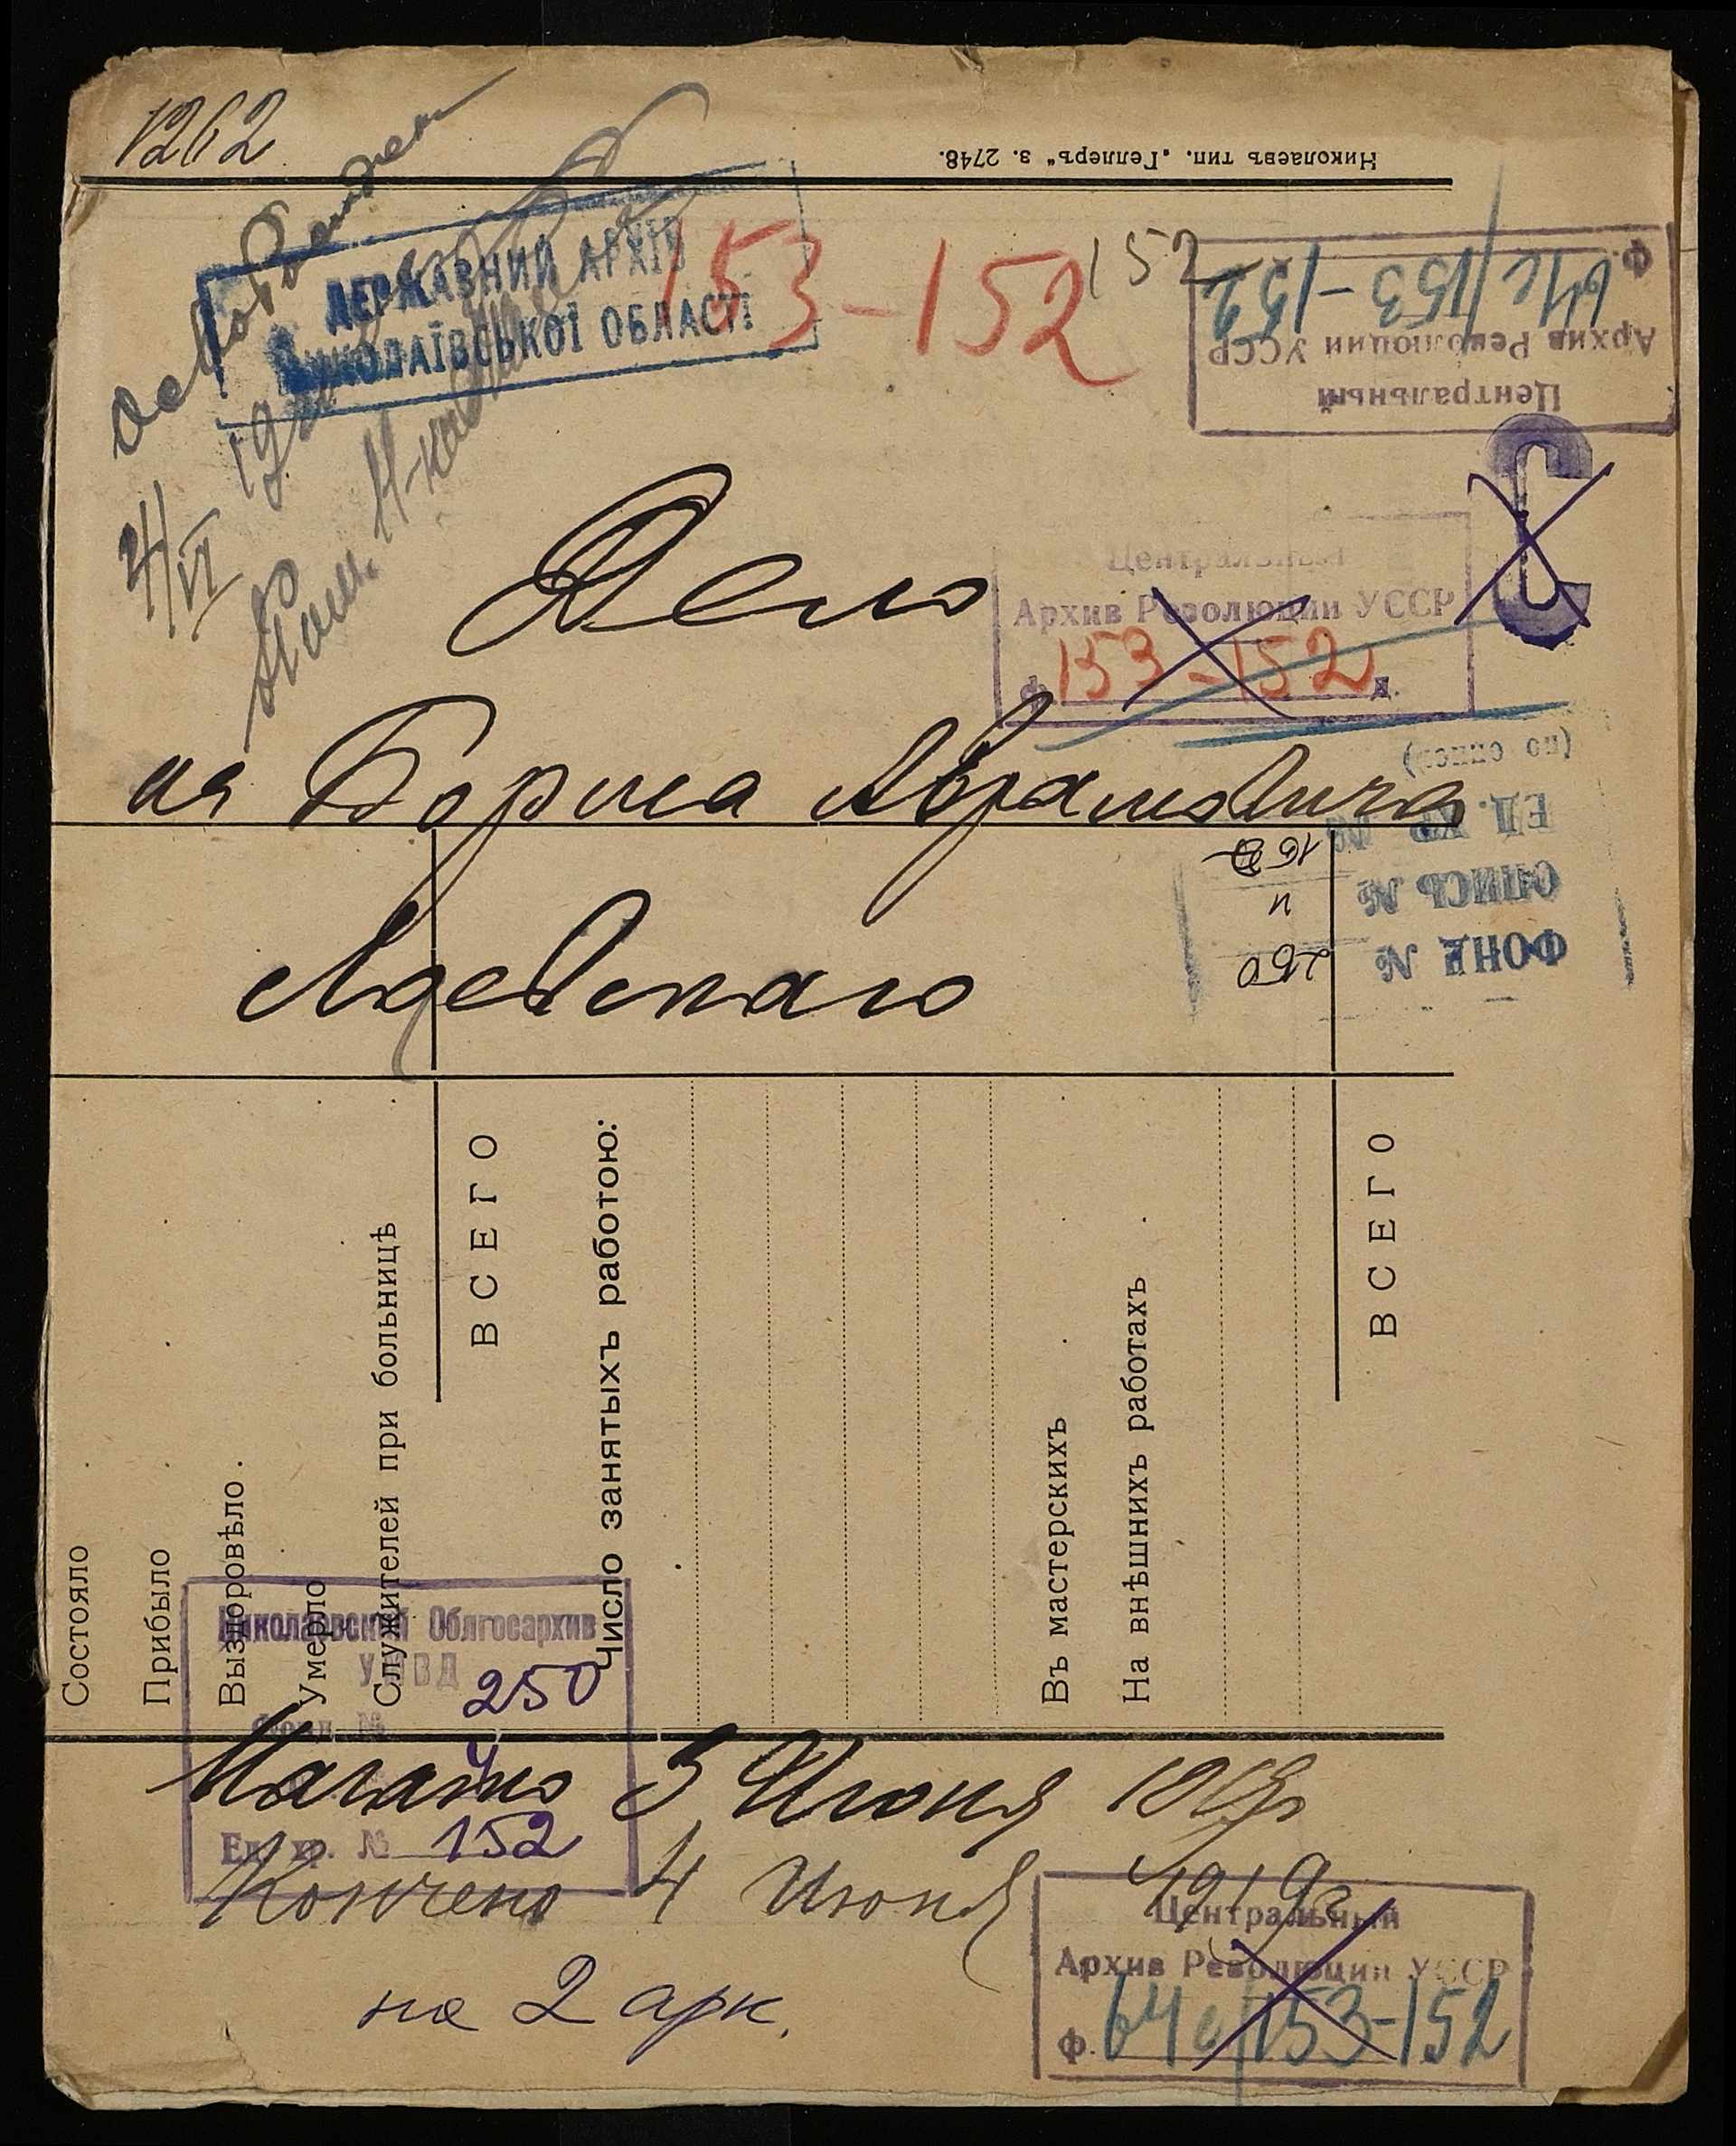 1262
Николаевъ тип. „Геллеръ“ з. 2748.
Освобожден
4/VI 19
ДЕРЖАВНИЙ АРХІВ
МИКОЛАЇВСЬКОЇ ОБЛАСТІ
153-152
152
Центральный
Архив Революции УССР
Ф. 64с/153-152
Дело
Центральный
Архив Революции УССР
ф. 153-152 д.
на Бориса Абрамовича
(по описи)
ЕД. ХР. № 152
ОПИСЬ № 4
ФОНД № 250
Состояло
Прибыло
Выздоровѣло
Умерло
Служителей при больницѣ
ВСЕГО
Число занятыхъ работою:
Въ мастерскихъ
На внѣшнихъ работахъ
ВСЕГО
Николаевский Облгосархив
УМВД
Фонд № 250
4
Ед. хр. № 152
Начато 3 Июня 1919г
Кончено 4 Июня 1919г
на 2 арк.
Центральный
Архив Революции УССР
ф. 64с/153-152